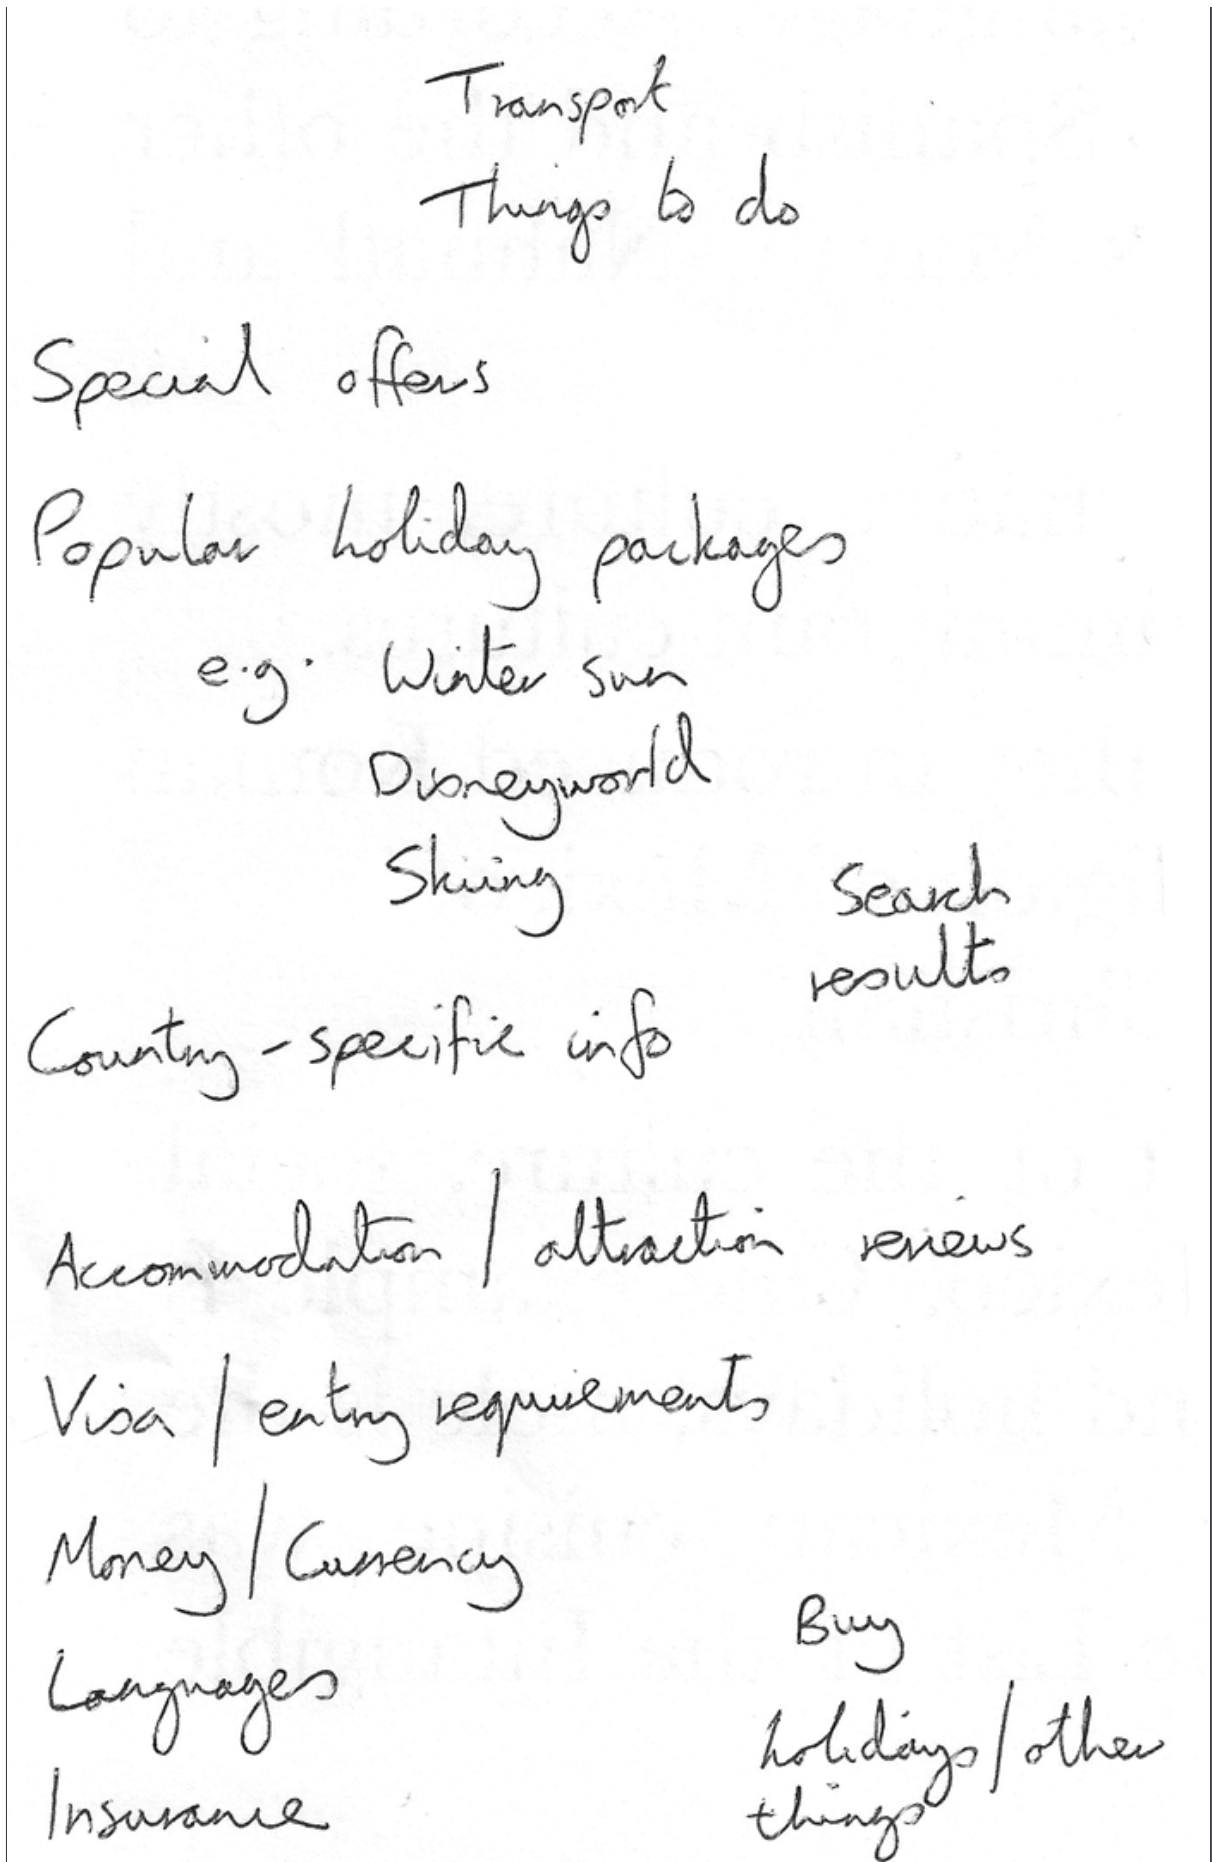 Transport
Things to do
Special offers
Popular holiday packages
e.g. Winter sun
Disneyworld
Skiing
Search
results
Country-specific info
Accommodation / attraction reviews
Visa / entry requirements
Money / Currency
Languages
Insurance
Buy
holidays / other
things